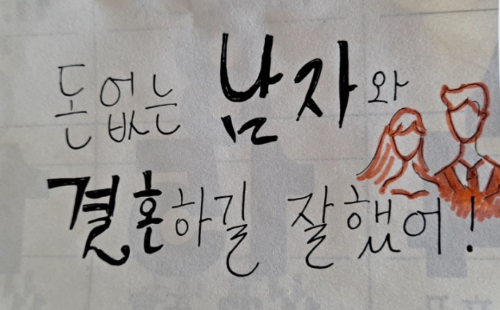 돈없는 남자와
결혼하길 잘했어!